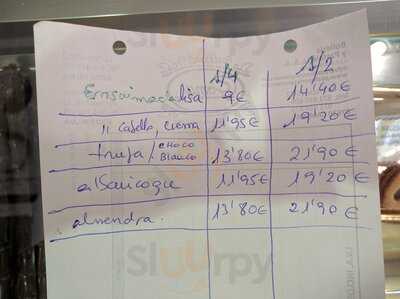 1/4 1/2
Ensaimada lisa 9€ 14'40€
" Cabello, crema 11'95€ 19'20€
trufa/CHOCO
BLANCO 13'80€ 21'90€
albaricoque 11'95€ 19'20€
almendra. 13'80€ 21'90€
Sluurpy
Sluurpy